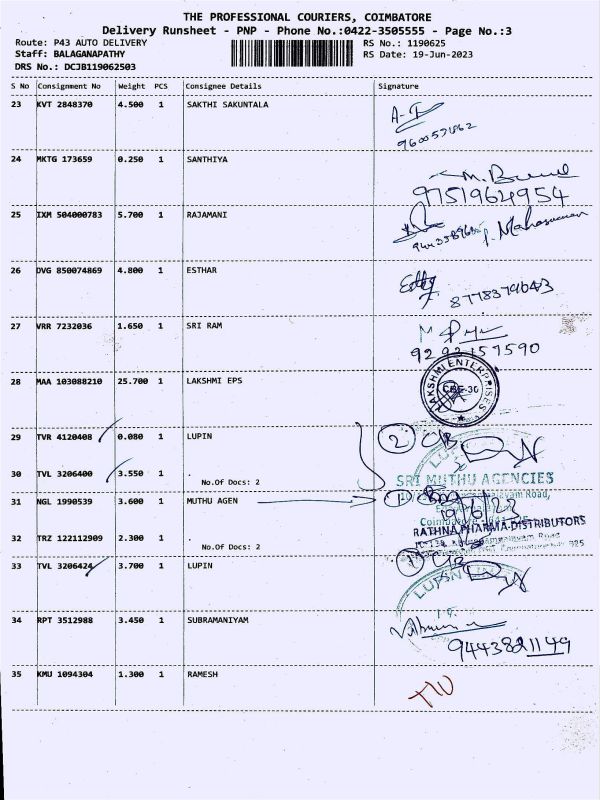 THE PROFESSIONAL COURIERS, COIMBATORE
Delivery Runsheet - PNP - Phone No.:0422-3505555 - Page No.:3
Route: P43 AUTO DELIVERY RS No.: 1190625
Staff: BALAGANAPATHY RS Date: 19-Jun-2023
DRS No.: DCJB119062503
S No Consignment No Weight PCS Consignee Details Signature
23 KVT 2848370 4.500 1 SAKTHI SAKUNTALA
24 MKTG 173659 0.250 1 SANTHIYA
9751964954
25 IXM 504000783 5.700 1 RAJAMANI
26 DVG 850074869 4.800 1 ESTHAR
8778379643
27 VRR 7232036 1.650 1 SRI RAM
9292157590
28 MAA 103088210 25.700 1 LAKSHMI EPS
LAKSHMI ENTERPRISES
CBE-30
29 TVR 4120408 0.080 1 LUPIN
2
30 TVL 3206400 3.550 1 .
No.Of Docs: 2
SRI MUTHU AGENCIES
31 NGL 1990539 3.600 1 MUTHU AGEN
1
19/6/23
RATHNA PHARMA DISTRIBUTORS
32 TRZ 122112909 2.300 1 .
No.Of Docs: 2
33 TVL 3206424 3.700 1 LUPIN
1
LUPIN
34 RPT 3512988 3.450 1 SUBRAMANIYAM
9443821149
35 KMU 1094304 1.300 1 RAMESH